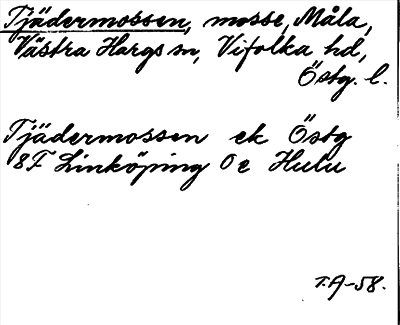 Tjädermossen, mosse, Måla,
Västra Hargs sn, Vifolka hd,
Östg. l.
Tjädermossen ek Östg
8F Linköping 0e Hulu
T.A-58.